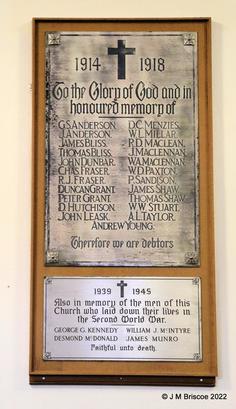 1914 1918
To the Glory of God and in
honoured memory of
G.S. ANDERSON. D.C. MENZIES.
J. ANDERSON. W.L. MILLAR.
JAMES BLISS. R.D. MACLEAN.
THOMAS BLISS. J. MACLENNAN.
JOHN DUNBAR. W.A. MACLENNAN.
CHAS FRASER. W.D. PAXTON.
R.J. FRASER. P. SANDISON.
DUNCAN GRANT. JAMES SHAW.
PETER GRANT. THOMAS SHAW.
D. HUTCHISON. W.W. STUART.
JOHN LEASK. A.L. TAYLOR.
ANDREW YOUNG.
Therefore we are debtors
1939 1945
Also in memory of the men of this
Church who laid down their lives in
the Second World War.
GEORGE G. KENNEDY WILLIAM J. McINTYRE
DESMOND McDONALD JAMES MUNRO
Faithful unto death.
© J M Briscoe 2022